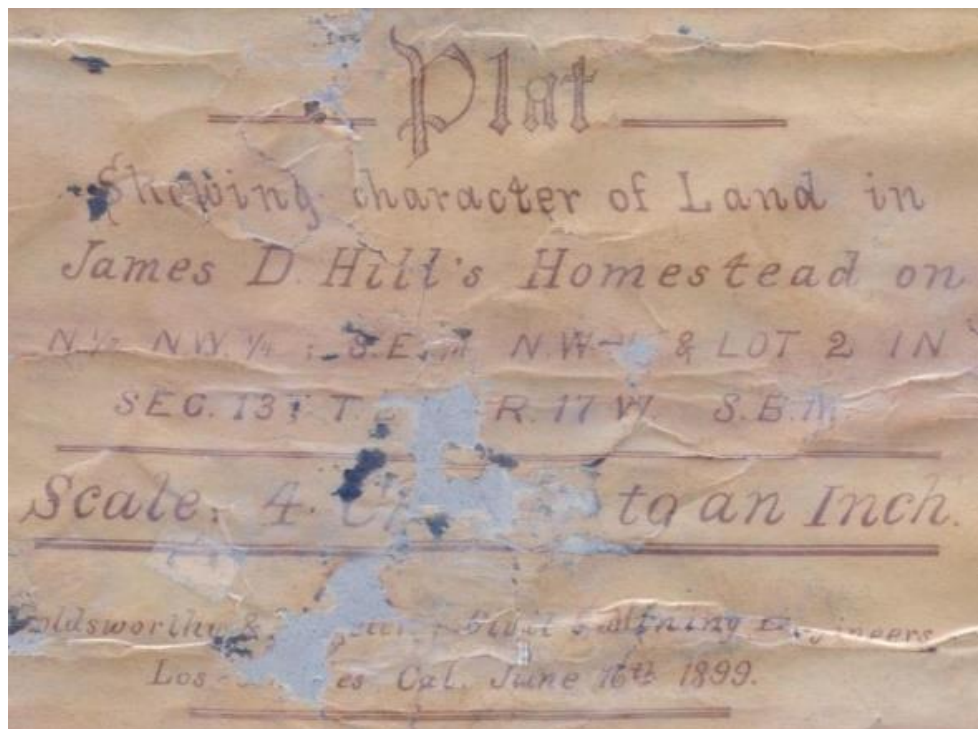 Plat
Shewing character of Land in
James D. Hill's Homestead on
N.½ N.W.¼ ; S.E. N.W. & LOT 2 IN
SEC. 13 T R. 17 W. S.B.M.
Scale: 4. to an Inch.
& Civil & Mining Engineers
Los Cal. June 16th 1899.